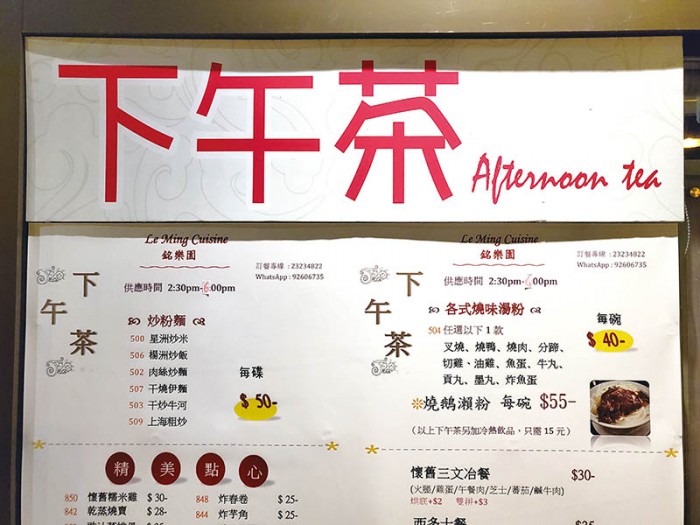 下午茶 Afternoon tea
Le Ming Cuisine
銘樂園
訂餐專線 : 23234822
WhatsApp : 92606735
下午茶
供應時間 2:30pm-6:00pm
炒粉麵
500 星洲炒米
506 楊洲炒飯
502 肉絲炒麵
507 干燒伊麵
503 干炒牛河
509 上海粗炒
每碟
$ 50-
精美點心
850 懷舊糯米雞 $ 30-
842 乾蒸燒賣 $ 28-
848 炸春卷 $ 25-
844 炸芋角 $ 25-
Le Ming Cuisine
銘樂園
訂餐專線 : 23234822
WhatsApp : 92606735
下午茶
供應時間 2:30pm-6:00pm
各式燒味湯粉
504 任選以下 1 款
叉燒、燒鴨、燒肉、分蹄、
切雞、油雞、魚蛋、牛丸、
貢丸、墨丸、炸魚蛋
每碗
$ 40-
※燒鵝瀨粉 每碗 $55-
(以上下午茶另加冷熱飲品，只需 15 元)
懷舊三文冶餐 $30-
(火腿/雞蛋/午餐肉/芝士/蕃茄/鹹牛肉)
烘底+$2 雙拼+$3
西多士餐